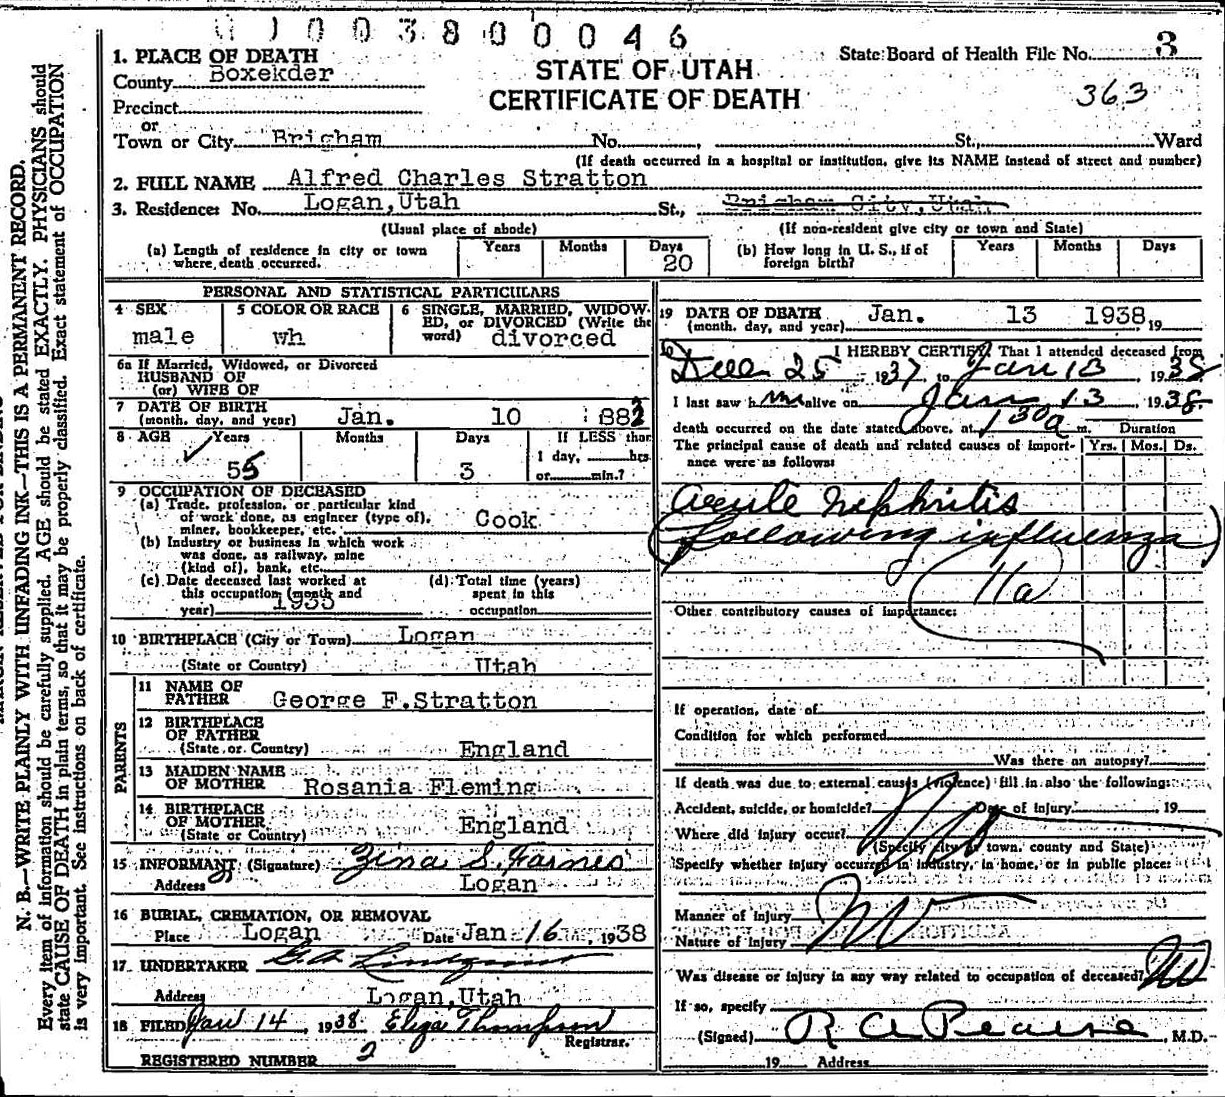 0 0 3 8 0 0 0 4 6
1. PLACE OF DEATH
County Boxekder
Precinct
or
Town or City Brigham No. , St., Ward
(If death occurred in a hospital or institution, give its NAME instead of street and number)
STATE OF UTAH
CERTIFICATE OF DEATH
State Board of Health File No. 3
363
2. FULL NAME Alfred Charles Stratton
3. Residence: No. Logan,Utah St., Brigham City,Utah
(Usual place of abode) (If non-resident give city or town and State)
(a) Length of residence in city or town where death occurred. Years Months Days 20
(b) How long in U. S., if of foreign birth? Years Months Days
PERSONAL AND STATISTICAL PARTICULARS
4 SEX male
5 COLOR OR RACE wh
6 SINGLE, MARRIED, WIDOW-
ED, or DIVORCED (Write the
word) divorced
6a If Married, Widowed, or Divorced
HUSBAND OF
(or) WIFE OF
7 DATE OF BIRTH
(month, day, and year) Jan. 10 1882
8 AGE Years Months Days If LESS than
1 day, hrs.
or min.?
55 3
9 OCCUPATION OF DECEASED
(a) Trade, profession, or particular kind
of work done, as engineer (type of),
miner, bookkeeper, etc. Cook
(b) Industry or business in which work
was done, as railway, mine
(kind of), bank, etc.
(c) Date deceased last worked at
this occupation (month and
year) 1935
(d) Total time (years)
spent in this
occupation
10 BIRTHPLACE (City or Town) Logan
(State or Country) Utah
PARENTS
11 NAME OF
FATHER George F.Stratton
12 BIRTHPLACE
OF FATHER
(State or Country) England
13 MAIDEN NAME
OF MOTHER Rosania Fleming
14 BIRTHPLACE
OF MOTHER
(State or Country) England
15 INFORMANT (Signature) Zina S. Farnes
Address Logan
16 BURIAL, CREMATION, OR REMOVAL
Place Logan Date Jan 16, 1938
17 UNDERTAKER Lindquist
Address Logan,Utah
18 FILED Jan 14, 1938 Eliza Thompson
Registrar.
REGISTERED NUMBER 2
19 DATE OF DEATH
(month, day, and year) Jan. 13 1938 19
I HEREBY CERTIFY, That I attended deceased from
Dec 25 1937 to Jan 13, 1938
I last saw him alive on Jan 13 1938
death occurred on the date stated above, at 130a m. Duration
The principal cause of death and related causes of import-
ance were as follows: Yrs. Mos. Ds.
Acute Nephritis
(following influenza)
11a
Other contributory causes of importance:
If operation, date of
Condition for which performed
Was there an autopsy?
If death was due to external causes (violence) fill in also the following:
Accident, suicide, or homicide? Date of injury 19
Where did injury occur? No
(Specify city or town, county and State)
Specify whether injury occurred in industry, in home, or in public place:
Manner of injury
No
Nature of injury
Was disease or injury in any way related to occupation of deceased? No
If so, specify
(Signed) R A Pearse, M.D.
19 Address
N. B.—WRITE PLAINLY WITH UNFADING INK—THIS IS A PERMANENT RECORD.
Every item of information should be carefully supplied. AGE should be stated EXACTLY. PHYSICIANS should
state CAUSE OF DEATH in plain terms, so that it may be properly classified. Exact statement of OCCUPATION
is very important. See instructions on back of certificate.